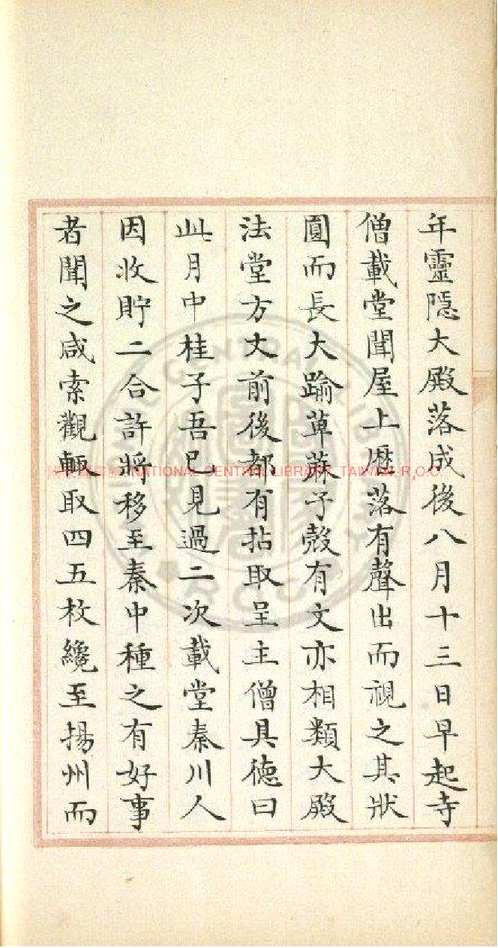 年靈隱大殿落成後八月十三日早起寺
僧載堂聞屋上歷落有聲出而視之其狀
圓而長大踰萆蔴子殼有文亦相類大殿
法堂方丈前後都有拈取呈主僧具德曰
此月中桂子吾已見過二次載堂秦川人
因收貯二合許將移至秦中種之有好事
者聞之咸索觀輙取四五枚纔至揚州而
NATIONAL CENTRAL LIBRARY, TAIWAN, R.O.C